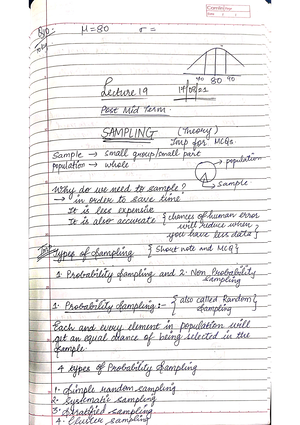 μ = 80    σ =
40 80 90
Lecture 19
14/08/21
Post Mid Term.
SAMPLING (Theory)
Imp for MCQs.
Sample → small group/small part
population → whole
population
Sample
Why do we need to sample?
→ in order to save time
It is less expensive
It is also accurate { chances of human error
will reduce when
you have less data }
Types of Sampling { Short note and MCQ }
1. Probability Sampling and 2. Non Probability
Sampling
1. Probability Sampling :- { also called Random
Sampling }
Each and every element in population will
get an equal chance of being selected in the
sample.
4 types of Probability Sampling
1. Simple random sampling
2. Systematic sampling
3. Stratified sampling
4. Cluster sampling